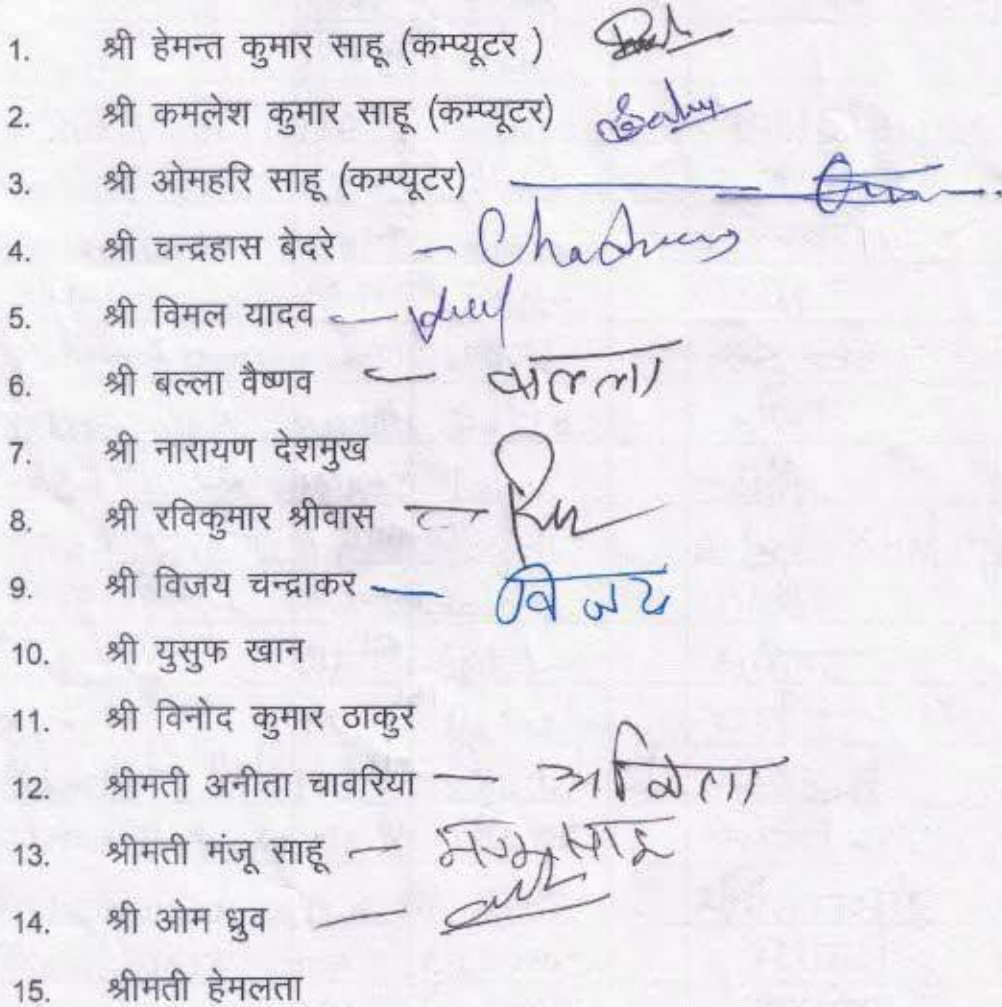 1. श्री हेमन्त कुमार साहू (कम्प्यूटर )
2. श्री कमलेश कुमार साहू (कम्प्यूटर) Sahu
3. श्री ओमहरि साहू (कम्प्यूटर)
4. श्री चन्द्रहास बेदरे –
5. श्री विमल यादव –
6. श्री बल्ला वैष्णव – बल्ला
7. श्री नारायण देशमुख
8. श्री रविकुमार श्रीवास –
9. श्री विजय चन्द्राकर – विजय
10. श्री युसुफ खान
11. श्री विनोद कुमार ठाकुर
12. श्रीमती अनीता चावरिया –
13. श्रीमती मंजू साहू –
14. श्री ओम ध्रुव –
15. श्रीमती हेमलता